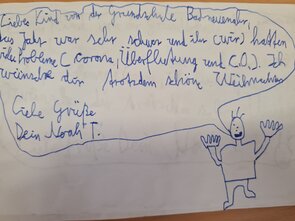 Liebes Kind von der Grundschule Bad neuenahr,
das Jahr war sehr schwer und ihr (wir) hatten
viele Probleme (corona, Überflutung und C.O.). Ich
wünsche dir trotzdem schöne Weihnachten
Liele Grüße
Dein Noah T.